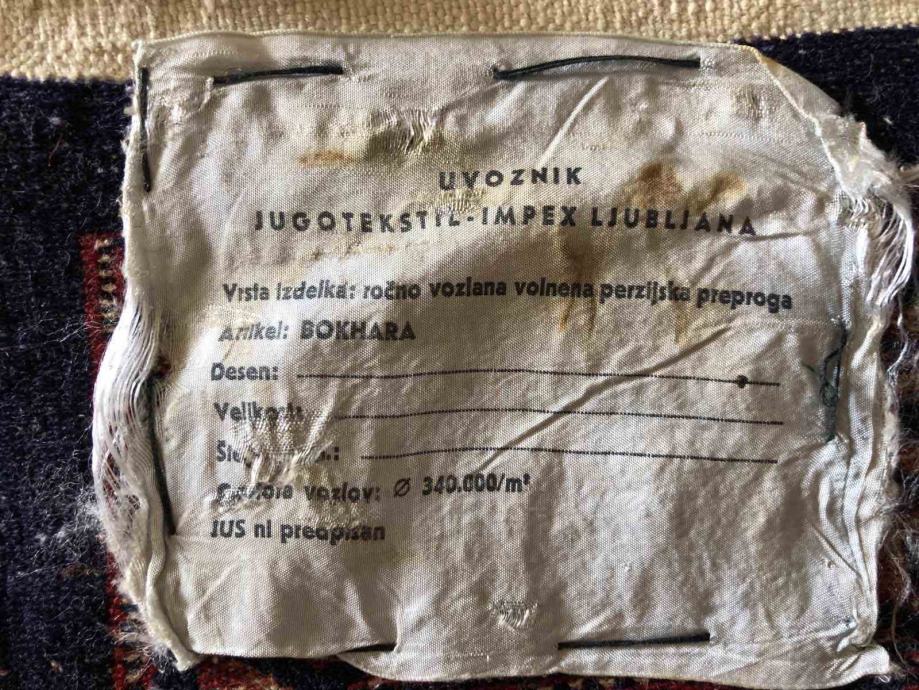 UVOZNIK
JUGOTEKSTIL-IMPEX LJUBLJANA
Vrsta izdelka: ročno vozlana volnena perzijska preproga
Artikel: BOKHARA
Desen:
Velikost:
vozlov: Ø 340.000/m²
JUS ni predpisan